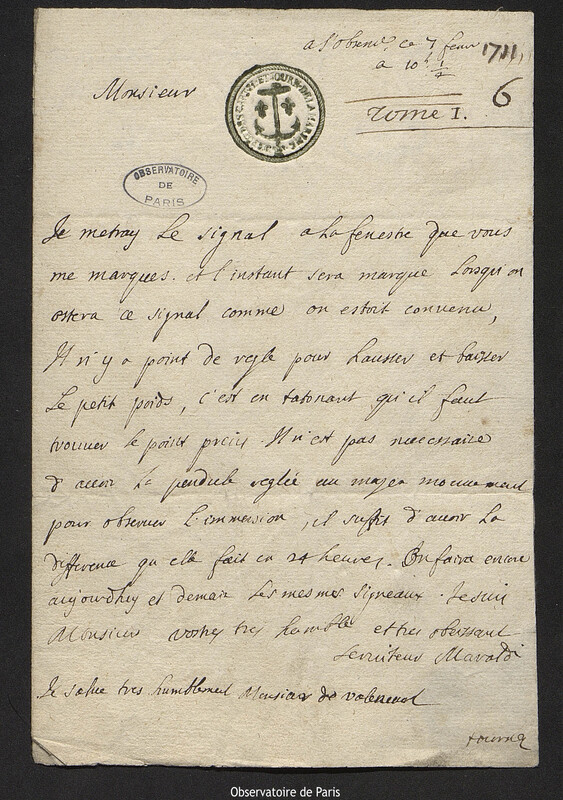 a l'observ.re ce 7 fevr 1711,
a 10h 1/2
6
Tome I.
Monsieur
OBSERVATOIRE
DE
PARIS
Je metray Le signal a la fenestre que vous
me marques. et l'instant sera marque Lorsqu'on
ostera ce signal comme on estoit convenu,
Il n'y a point de regle pour hausser et baisser
Le petit poids, c'est en tatonant qu'il faut
trouver le point precis. Il n'est pas necessaire
d'avoir La pendule reglée au moyen mouvement
pour observer L'immersion, il suffit d'avoir La
difference qu'elle fait en 24 heures. On faira encore
aujourdhuy et demain Les mesmes signeaux. Je suis
Monsieur vostre tres humble et tres obeissant
serviteur Maraldi
Je salue tres humblement Monsieur de
tourné
Observatoire de Paris